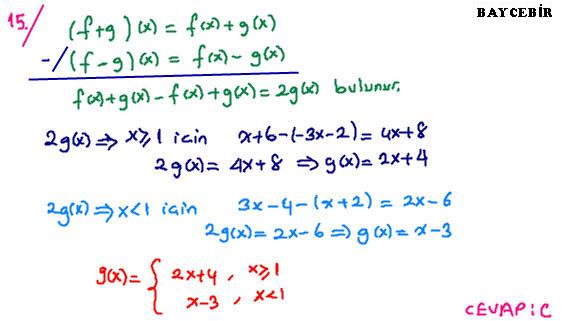 BAYCEBİR
15./ (f+g)(x) = f(x)+g(x)
-/(f-g)(x) = f(x)-g(x)
f(x)+g(x)-f(x)+g(x)=2g(x) bulunur.
2g(x)⇒ x≥1 için x+6-(-3x-2)=4x+8
2g(x)= 4x+8 ⇒ g(x)=2x+4
2g(x)⇒ x<1 için 3x-4-(x+2) = 2x-6
2g(x)=2x-6 ⇒ g(x)=x-3
g(x)= { 2x+4, x≥1
x-3, x<1
CEVAP: C